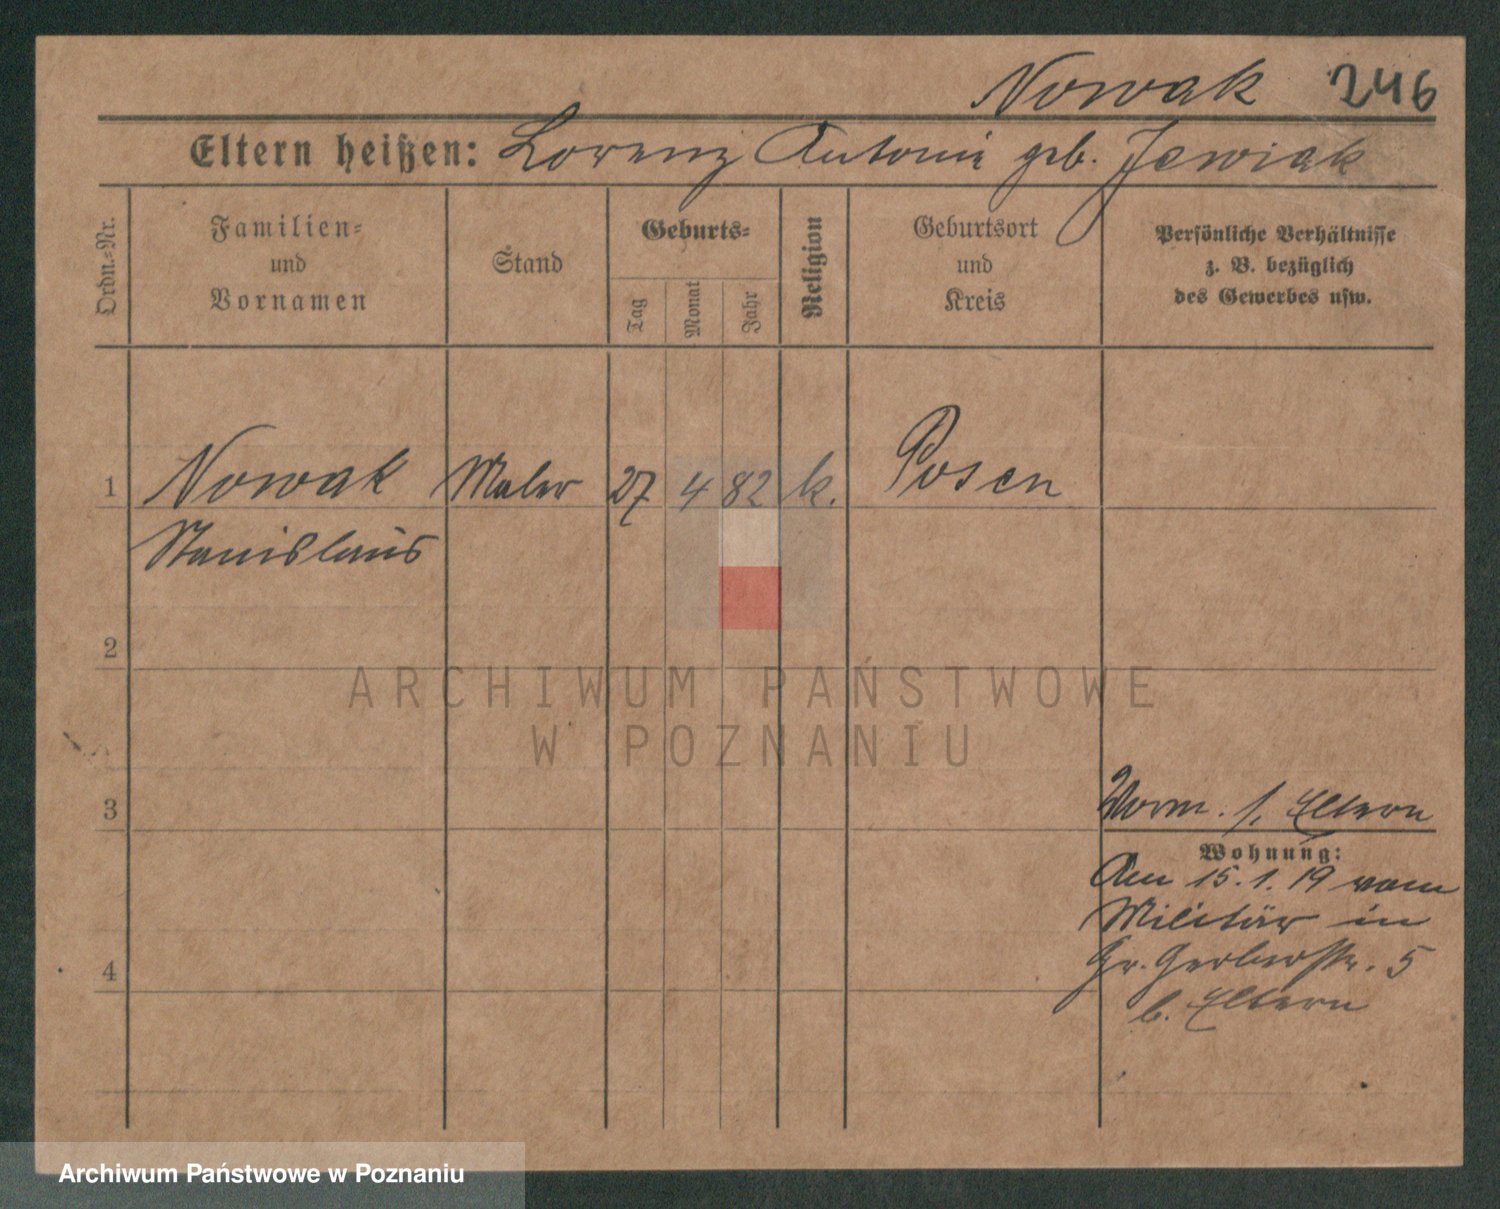 Nowak 246
Eltern heißen: Lorenz Antonie geb. Jewiak
Ordn.-Nr.
Familien-
und
Vornamen
Stand
Geburts-
Tag
Monat
Jahr
Religion
Geburtsort
und
Kreis
Persönliche Verhältnisse
z. B. bezüglich
des Gewerbes usw.
1 Nowak Maler 27 4 82 k. Posen
Stanislaus
2
ARCHIWUM PAŃSTWOWE
W POZNANIU
3
Eltern
Wohnung:
Am 15.1.19 vom
Militär in
Gr. Gerberstr. 5
4
b. Eltern
Archiwum Państwowe w Poznaniu